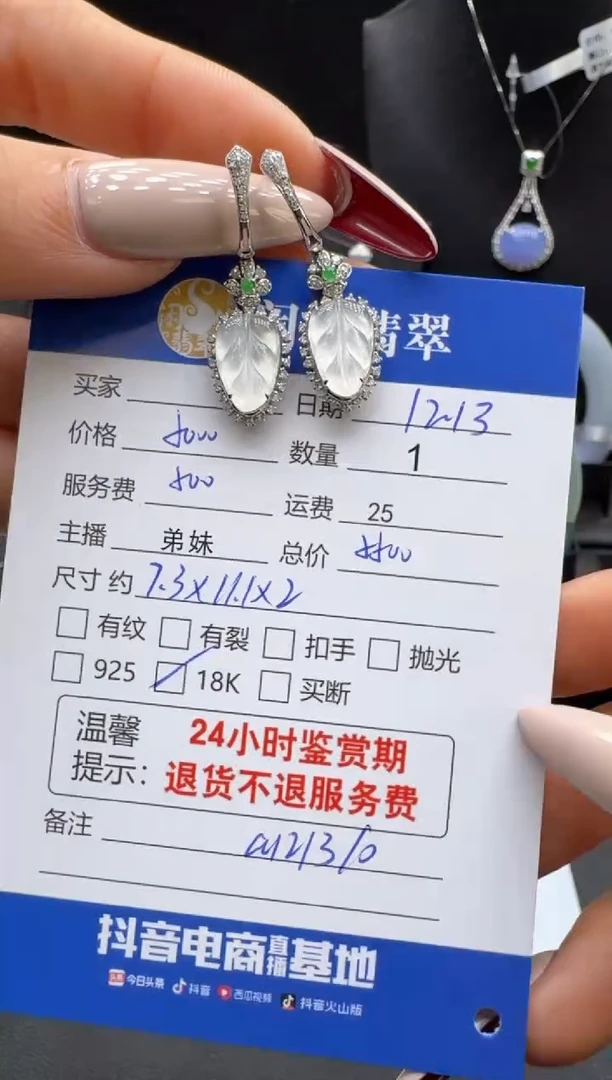 翡翠
买家
日期 12.13
价格 5000
数量 1
服务费 500
运费 25
主播 弟妹
总价 5500
尺寸 约 7.3X11.1X2
有纹 有裂 扣手 抛光
925 18K 买断
温馨提示:
24小时鉴赏期
退货不退服务费
备注
抖音电商直播基地
今日头条 抖音 西瓜视频 抖音火山版